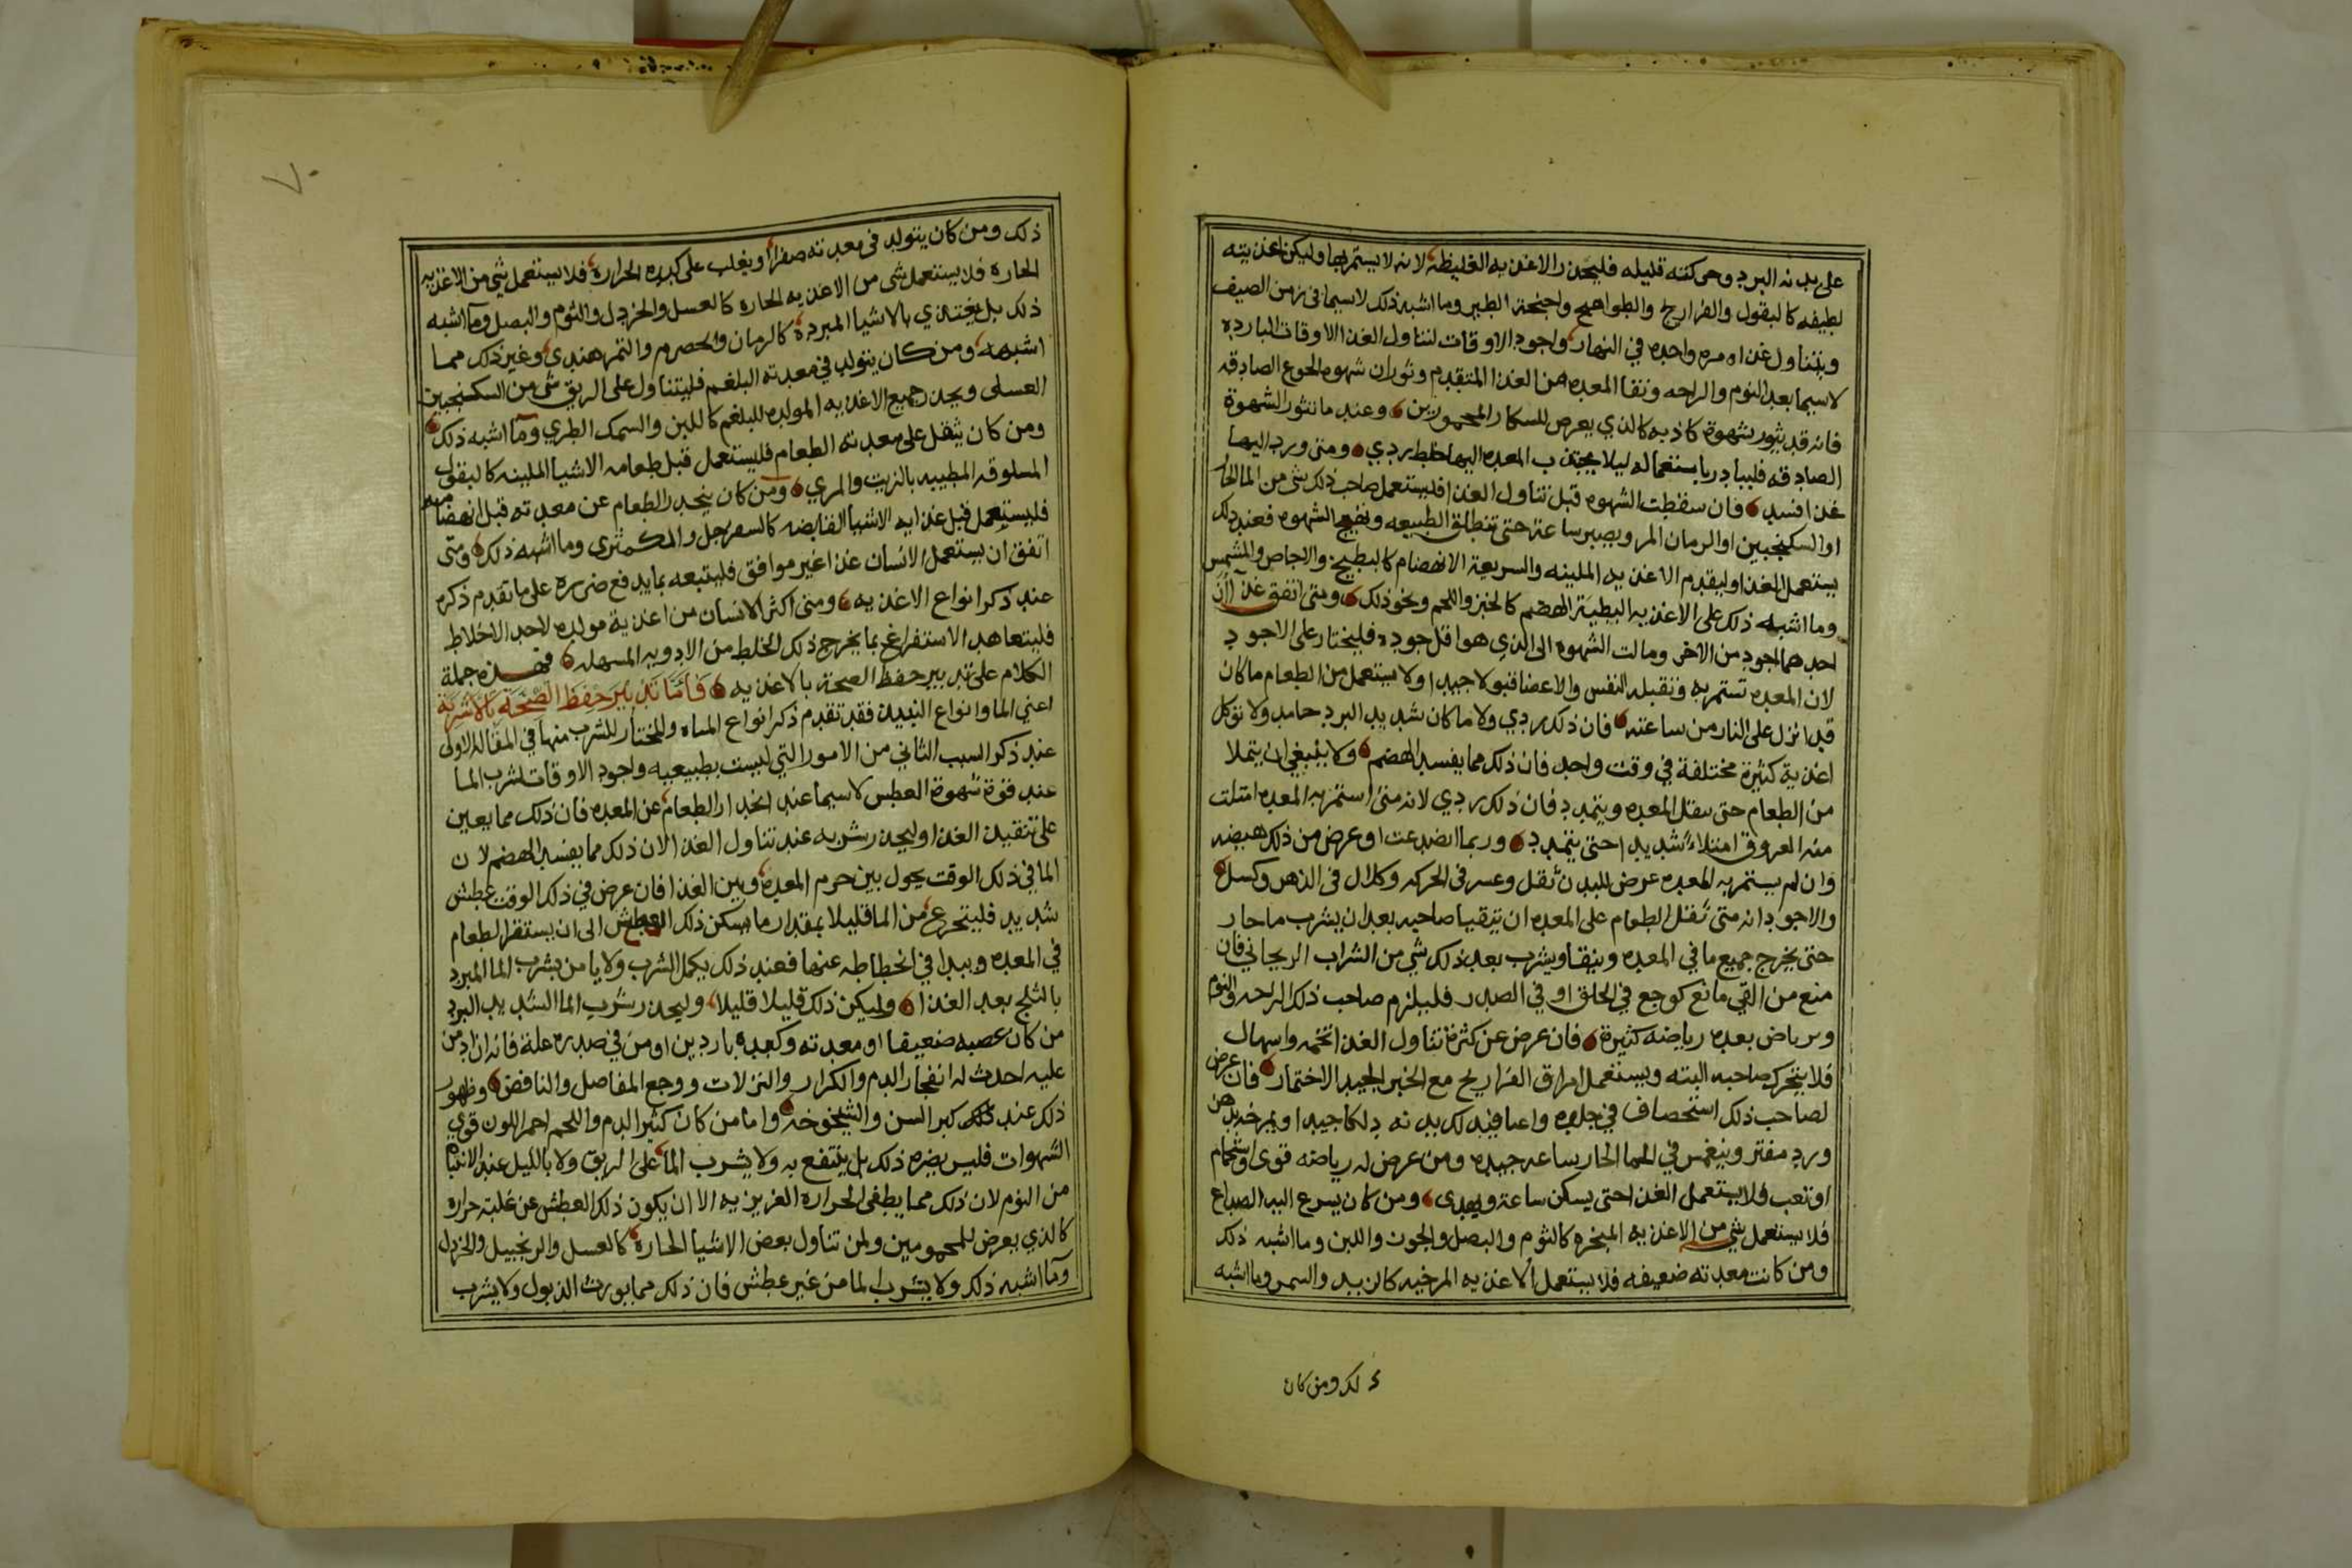 على بدنه البرد وحركته قليله فليحذر الاغذيه الغليظه لانه لا يستمريها وليكن اغذيته
لطيفه كالبقول والفراريج والطواهيج واجنحة الطير وما اشبه ذلك لاسيما في زمن الصيف
ويتناول غذاه مره واحده في النهار واجود الاوقات لتناول الغذا الاوقات البارده
لاسيما بعد النوم والراحه ونقا المعده من الغذا المتقدم وثوران شهوه الجوع الصادقه
فانه قد يثور شهوة كاذبه كالذي يعرض للسكار المخمورين وعند ما تثور الشهوة
الصادقه فليبادر باستعماله ليلا يجتذب المعده اليها خلط ردي ومتى ورد اليها
غذا افسد فان سقطت الشهوه قبل تناول الغذا فليستعمل صاحب ذلك شي من الما الحار
او السكنجبين او الرمان المر ويصبر ساعة حتى تنطلق الطبيعه وتهيج الشهوه فعند ذلك
يستعمل الغذا وليقدم الاغذيه الملينه والسريعة الانهضام كالبطيخ والاجاص والمشمس
وما اشبه ذلك على الاغذيه البطيئة الهضم كالخبز واللحم ونحو ذلك ومتى اتفق غذاان
احدهما اجود من الاخر ومالت الشهوه الى الذي هو اقل جوده فليختار على الاجود
لان المعده تستمريه وتقبله النفس والاعضا قبولا جيدا ولا يستعمل من الطعام ما كان
قد انزل على النار من ساعته فان ذلك ردي ولا ما كان شديد البرد جامد ولا توكل
اغذية كثيرة مختلفة في وقت واحد فان ذلك مما يفسد الهضم ولا ينبغي ان يتملا
من الطعام حتى تثقل المعده ويتمدد فان ذلك ردي لانه متى استمريه المعده امتلت
منه العروق امتلاء شديدا حتى يتمدد وربما انصدعت او عرض من ذلك هيضه
وان لم يستمريه المعده عرض للبدن ثقل وعسر في الحركه وكلال في الذهن وكسل
والاجود انه متى ثقل الطعام على المعده ان يتقيا صاحبه بعد ان يشرب ما حار
حتى يخرج جميع ما في المعده وينقا ويشرب بعد ذلك شي من الشراب الريحاني فان
منع من القي مانع كوجع في الحلق او في الصدر فليلزم صاحب ذلك الراحه والنوم
ويرتاض بعده رياضه كثيرة فان عرض عن كثرة تناول الغذا تخمه واسهال
فلا يتحرك صاحبه البته ويستعمل امراق الفراريج مع الخبز الجيد الاختمار فان عرض
لصاحب ذلك استحصاف في جلده واعيا فيدلك بدنه دلكا جيدا ويمرخ بدهن
ورد مفتر وينغمس في الما الحار ساعه جيده ومن عرض له رياضه قوى او استحمام
او تعب فلا يستعمل الغذا حتى يسكن ساعة ويهدى ومن كان يسرع اليه الصداع
فلا يستعمل شي من الاغذيه المبخره كالثوم والبصل والجوز واللبن وما اشبه ذلك
ومن كانت معدته ضعيفه فلا يستعمل الاغذيه المرخيه كالزبد والسمن وما اشبه
ذلك ومن كان
٧٠
ذلك ومن كان يتولد في معدته صفرا او يغلب على كبده الحراره فلا يستعمل شي من الاغذيه
الحاره فلا يستعمل شي من الاغذيه الحاره كالعسل والخردل والثوم والبصل وما اشبه
ذلك بل يغتذي بالاشيا المبردة كالرمان والحصرم والتمر هندي وغير ذلك مما
اشبهه ومن كان يتولد في معدته البلغم فليتناول على الريق شي من السكنجبين
العسلى ويحذر جميع الاغذيه المولده للبلغم كاللبن والسمك الطري وما اشبه ذلك
ومن كان يثقل على معدته الطعام فليستعمل قبل طعامه الاشيا الملينه كالبقول
المسلوقه المطيبه بالزيت والمري ومن كان ينحدر الطعام عن معدته قبل انهضامه
فليستعمل قبل غذايه الاشيا القابضه كالسفرجل والكمثرى وما اشبه ذلك ومتى
اتفق ان يستعمل الانسان غذا غير موافق فليتبعه بما يدفع ضرره على ما تقدم ذكره
عند ذكر انواع الاغذيه ومتى اكثر الانسان من اغذية مولده لاحد الاخلاط
فليتعاهد الاستفراغ بما يخرج ذلك الخلط من الادويه المسهله فهذه جملة
الكلام على تدبير حفظ الصحة بالاغذيه فاما تدبير حفظ الصحة بالاشربة
اعني الما وانواع النبيذ فقد تقدم ذكر انواع المياه والمختار للشرب منها في المقاله الاولى
عند ذكر السبب الثاني من الامور التي ليست بطبيعيه واجود الاوقات لشرب الما
عند قوة شهوة العطس لاسيما عند انحدار الطعام عن المعده فان ذلك مما يعين
على تنفيذ الغذا وليحذر شربه عند تناول الغذا لان ذلك مما يفسد الهضم لان
الما في ذلك الوقت يحول بين جرم المعده وبين الغذا فان عرض في ذلك الوقت عطش
شديد فليتجرع من الما قليلا بمقدار ما يسكن ذلك العطش الى ان يستقر الطعام
في المعده ويبدا في انحطاطه عنها فعند ذلك يكمل الشرب ولا يامن يشرب الما المبرد
بالثلج بعد الغذا وليكن ذلك قليلا قليلا وليحذر شرب الما الشديد البرد
من كان عصبه ضعيفا او معدته وكبده باردين او من في صدره علة فانه ان ادمن
عليه احدث له انفجار الدم والكزاز والنزلات ووجع المفاصل والنافض وظهور
ذلك عند كبر السن والشيخوخه واما من كان كثير الدم واللحم احمر اللون قوي
الشهوات فليس يضره ذلك بل ينتفع به ولا يشرب الما على الريق ولا بالليل عند الانتباه
من النوم لان ذلك مما يطفى الحراره الغريزيه الا ان يكون ذلك العطش عن غلبة حراره
كالذي يعرض للمحمومين ولمن تناول بعض الاشيا الحاره كالعسل والزنجبيل والخردل
وما اشبه ذلك ولا يشرب الما من غير عطش فان ذلك مما يورث الذبول ولا يشرب